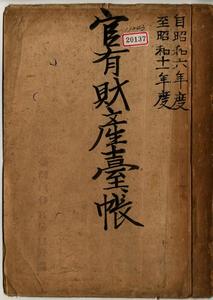 自昭和六年度
至昭和十一年度
20137
官有財産臺帳